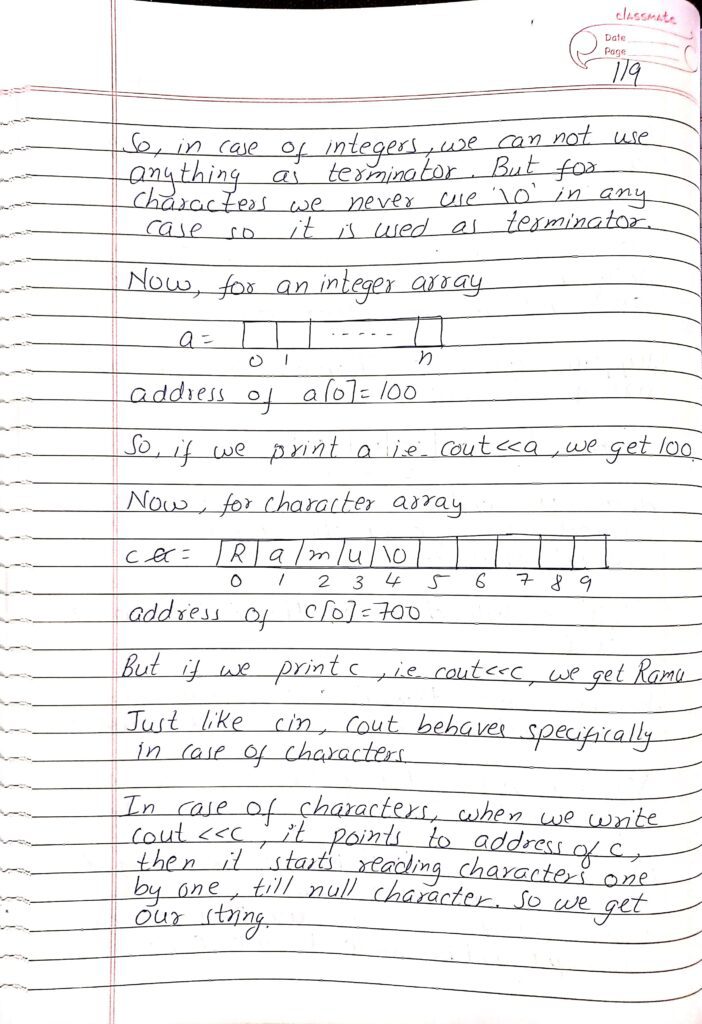 classmate
Date
Page
119
So, in case of integers, we can not use
anything as terminator. But for
characters we never use '\0' in any
case so it is used as terminator.
Now, for an integer array
a = -----
0 1 n
address of a[0] = 100
So, if we print a i.e. cout<<a, we get 100.
Now, for character array
c = R a m u \0
0 1 2 3 4 5 6 7 8 9
address of c[0] = 700
But if we print c, i.e. cout<<c, we get Ramu
Just like cin, cout behaves specifically
in case of characters.
In case of characters, when we write
cout <<c, it points to address of c,
then it starts reading characters one
by one, till null character. So we get
our string.